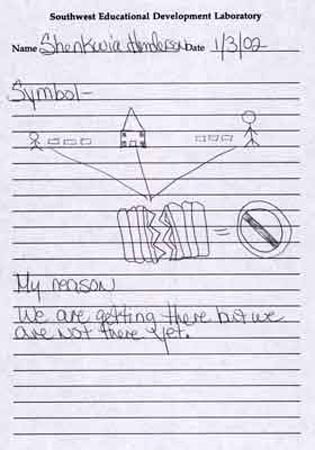 Southwest Educational Development Laboratory
Name Shenkwia Henderson Date 1/3/02
Symbol-
=
My reason
We are getting there but we
are not there yet.